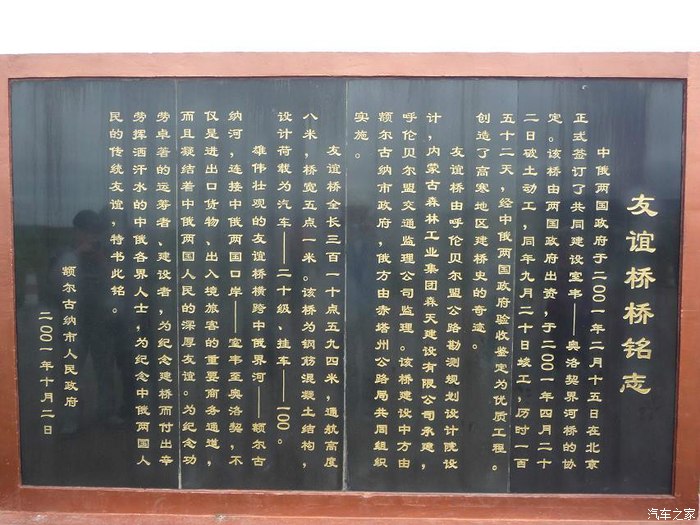 友谊桥桥铭志
中俄两国政府于二00一年二月十五日在北京
正式签订了共同建设室韦——奥洛契界河桥的协
定。该桥由两国政府出资，于二00一年四月二十
二日破土动工，同年九月二十日竣工，历时一百
五十二天，经中俄两国政府验收鉴定为优质工程。
创造了高寒地区建桥史的奇迹。
友谊桥由呼伦贝尔盟公路勘测规划设计院设
计，内蒙古森林工业集团森天建设有限公司承建，
呼伦贝尔盟交通监理公司监理。该桥建设中方由
额尔古纳市政府，俄方由赤塔州公路局共同组织
实施。
友谊桥全长三百一十点五九四米，通航高度
八米，桥宽五点一米。该桥为钢筋混凝土结构，
设计荷载为汽车——二十级、挂车——100。
雄伟壮观的友谊桥横跨中俄界河——额尔古
纳河，连接中俄两国口岸——室韦至奥洛契，不
仅是进出口货物、出入境旅客的重要商务通道，
而且凝结着中俄两国人民的深厚友谊。为纪念功
劳卓著的运筹者、建设者，为纪念建桥而付出辛
劳挥洒汗水的中俄各界人士，为纪念中俄两国人
民的传统友谊，特书此铭。
额尔古纳市人民政府
二00一年十月二日
汽车之家